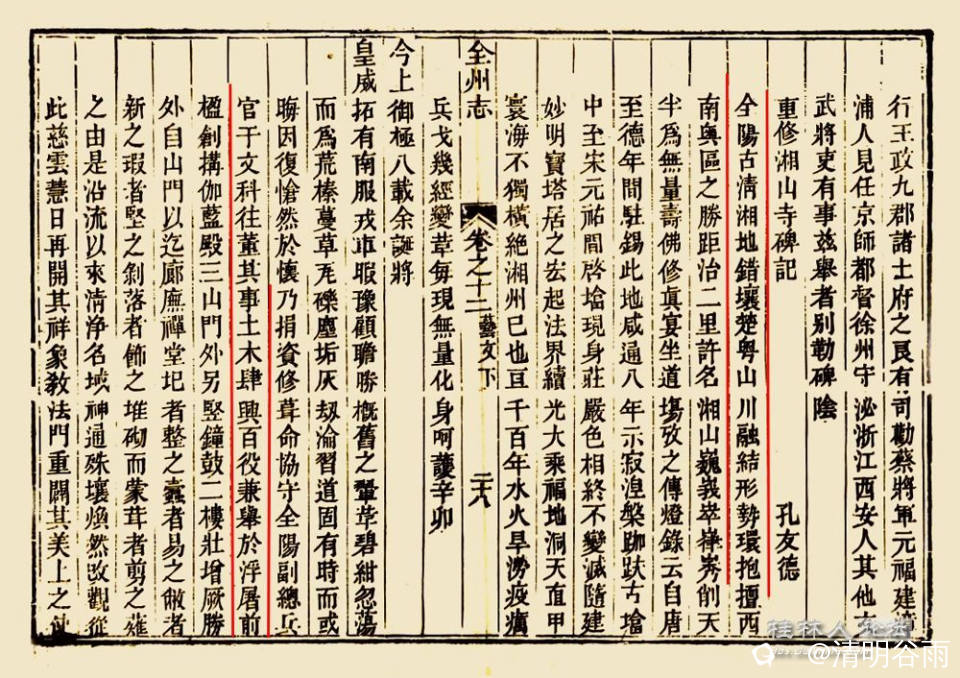 行王政九郡諸士府之良有司勸蔡將軍元福建漳
浦人見任京師都督徐州守泌浙江西安人其他文
武將吏有事兹舉者别勒碑陰
重修湘山寺碑記 孔友德
全陽古淸湘地錯壤楚粤山川融結形勢環抱擅西
南奥區之勝距治二里許名湘山巍峩崒嵂秀削天
半爲無量壽佛修眞宴坐道塲攷之傳燈錄云自唐
至德年間駐錫此地咸通八年示寂湼槃跏趺古塔
中至宋元祐間啓塔現身莊嚴色相終不變滅隨建
妙明寶塔居之厺起法界續光大乘福地洞天直甲
寰海不獨橫絶湘州已也亘千百年水火旱澇疫癘
全州志 卷之十二 藝文下 三十八
兵戈幾經變革每現無量化身呵護辛卯
今上御極八載余誕將
皇威拓有南服戎車暇豫顧瞻勝槪舊之翬草碧紺忽蕩
而爲荒榛蔓草瓦礫塵垢灰刼淪習道固有時而或
晦因復愴然於懷乃捐資修葺命協守全陽副總兵
官于文科往董其事土木肆興百役兼舉於浮屠前
楹創構伽藍殿三山門外另竪鐘鼓二樓壯增厥勝
外自山門以迄廊廡禪堂圮者整之蠹者易之敝者
新之瑕者堅之剝落者飾之堆砌而蒙茸者剪之薙
之由是沿流以來清净名域神通殊壤煥然改觀從
此慈雲慧日再開其祥象敎法門重闢其美上之使
桂林人论坛
@清明谷雨